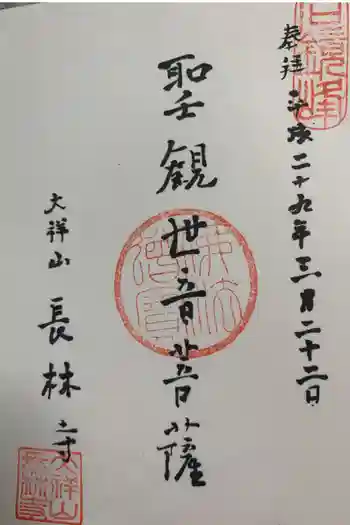 奉拝 平成二十九年三月二十二日
聖観世音菩薩
大祥山 長林寺
佛法僧寳
大祥山長林寺